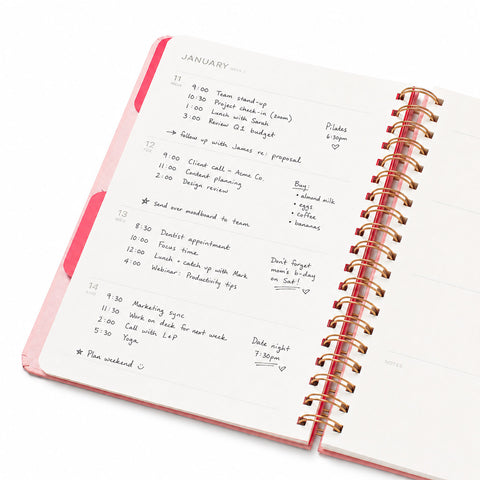 JANUARY
11
9:00 Team stand-up
10:30 Project check-in (zoom)
1:00 Lunch with Sarah
3:00 Review Q1 budget
Pilates
6:30pm
→ follow up with James re: proposal
12
9:00 Client call - Acme Co.
11:00 Content planning
2:00 Design review
Buy:
• almond milk
• eggs
• coffee
• bananas
★ Send over moodboard to team
13
8:30 Dentist appointment
10:00 Focus time
12:00 Lunch + catch up with Mark
4:00 Webinar: Productivity tips
Don't forget
mom's b-day
on Sat!
14
9:30 Marketing sync
11:30 Work on deck for next week
2:00 Call with L+P
5:30 Yoga
Date night
7:30pm
★ Plan weekend
NOTES